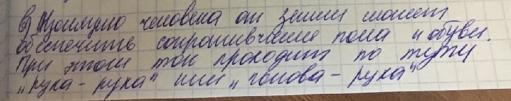 в) Изоляцию человека от земли может
обеспечить сопротивление пола и обуви.
При этом ток проходит по пути
„рука-рука" или „голова-рука"